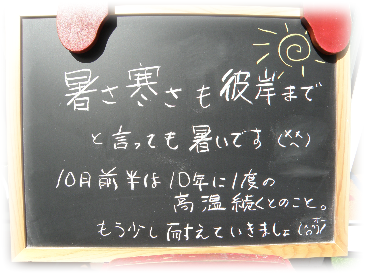 暑さ寒さも彼岸まで
と言っても暑いです(××へ)
10月前半は10年に1度の
高温続くとのこと。
もう少し耐えていきましょ